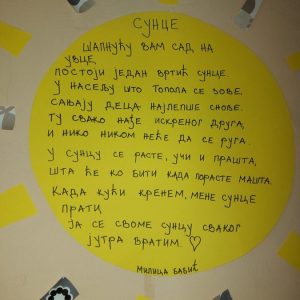 СУНЦЕ
ШАПНУЋУ ВАМ САД НА
УВЦЕ,
ПОСТОЈИ ЈЕДАН ВРТИЋ СУНЦЕ.
У НАСЕЉУ ШТО ТОПОЛА СЕ ЗОВЕ,
САЊАЈУ ДЕЦА НАЈЛЕПШЕ СНОВЕ.
ТУ СВАКО НАЂЕ ИСКРЕНОГ ДРУГА,
И НИКО НИКОМ НЕЋЕ ДА СЕ РУГА.
У СУНЦУ СЕ РАСТЕ, УЧИ И ПРАШТА,
ШТА ЋЕ КО БИТИ КАДА ПОРАСТЕ МАШТА.
КАДА КУЋИ КРЕНЕМ, МЕНЕ СУНЦЕ
ПРАТИ,
ЈА СЕ СВОМЕ СУНЦУ СВАКОГ
ЈУТРА ВРАТИМ. ♡
МИЛИЦА БАБИЋ